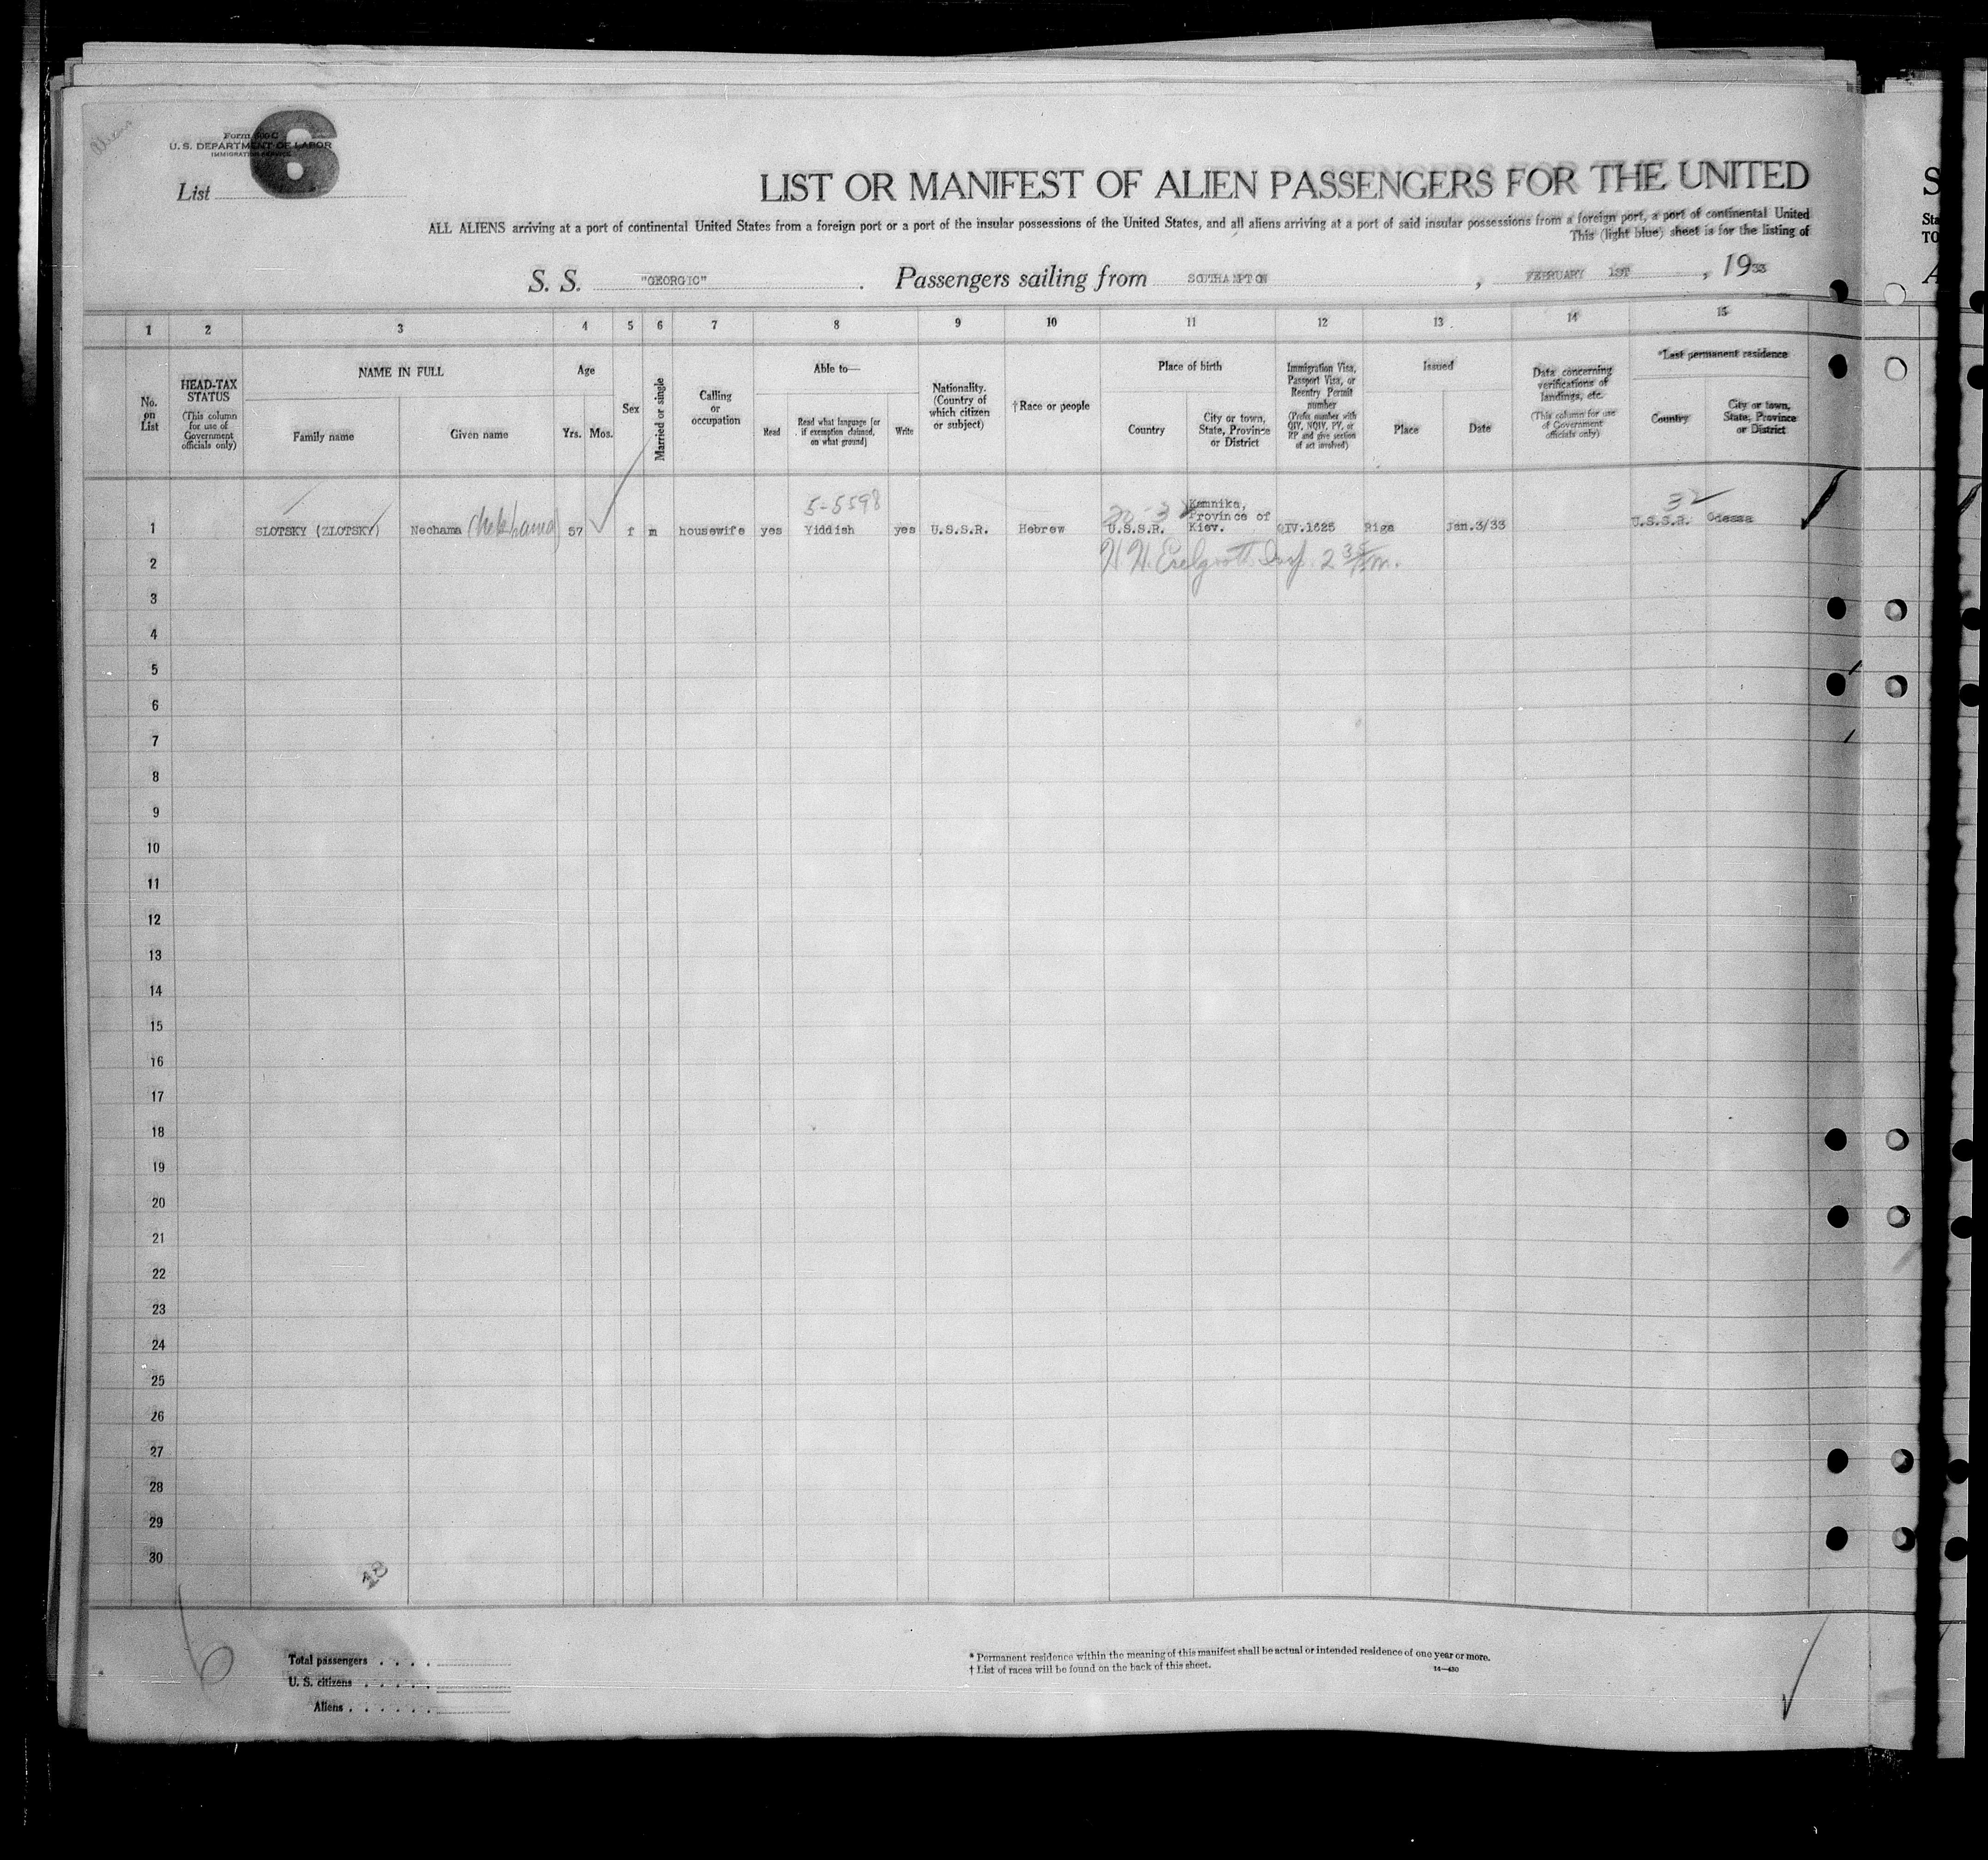 Aliens
Form 500 C
U. S. DEPARTMENT OF LABOR
IMMIGRATION SERVICE
6
List
LIST OR MANIFEST OF ALIEN PASSENGERS FOR THE UNITED
ALL ALIENS arriving at a port of continental United States from a foreign port or a port of the insular possessions of the United States, and all aliens arriving at a port of said insular possessions from a foreign port, a port of continental United
This (light blue) sheet is for the listing of
S. S. "GEORGIC" . Passengers sailing from SOUTHAMPTON , FEBRUARY 1ST , 1933
1 2 3 4 5 6 7 8 9 10 11 12 13 14 15
No. on List
HEAD-TAX STATUS
(This column for use of Government officials only)
NAME IN FULL
Family name
Given name
Age
Yrs. Mos.
Sex
Married or single
Calling or occupation
Able to—
Read
Read what language [or if exemption claimed, on what ground]
Write
Nationality. (Country of which citizen or subject)
†Race or people
Place of birth
Country
City or town, State, Province or District
Immigration Visa, Passport Visa, or Reentry Permit number
(Prefix number with QIV, NQIV, PV, or RP and give section of act involved)
Issued
Place
Date
Data concerning verifications of landings, etc.
(This column for use of Government officials only)
*Last permanent residence
Country
City or town, State, Province or District
5-5598
32
1 SLOTSKY (ZLOTSKY) Nechama (Nekhama) 57 f m housewife yes Yiddish yes U.S.S.R. Hebrew U.S.S.R. Kamnika, Province of Kiev. QIV.1625 Riga Jan.3/33 U.S.S.R. Odessa
2
3
4
5
6
7
8
9
10
11
12
13
14
15
16
17
18
19
20
21
22
23
24
25
26
27
28
29
30
6
Total passengers . . . .
U. S. citizens . . . . .
Aliens . . . . . .
* Permanent residence within the meaning of this manifest shall be actual or intended residence of one year or more.
† List of races will be found on the back of this sheet.
14—430
S
Sta
TO
A